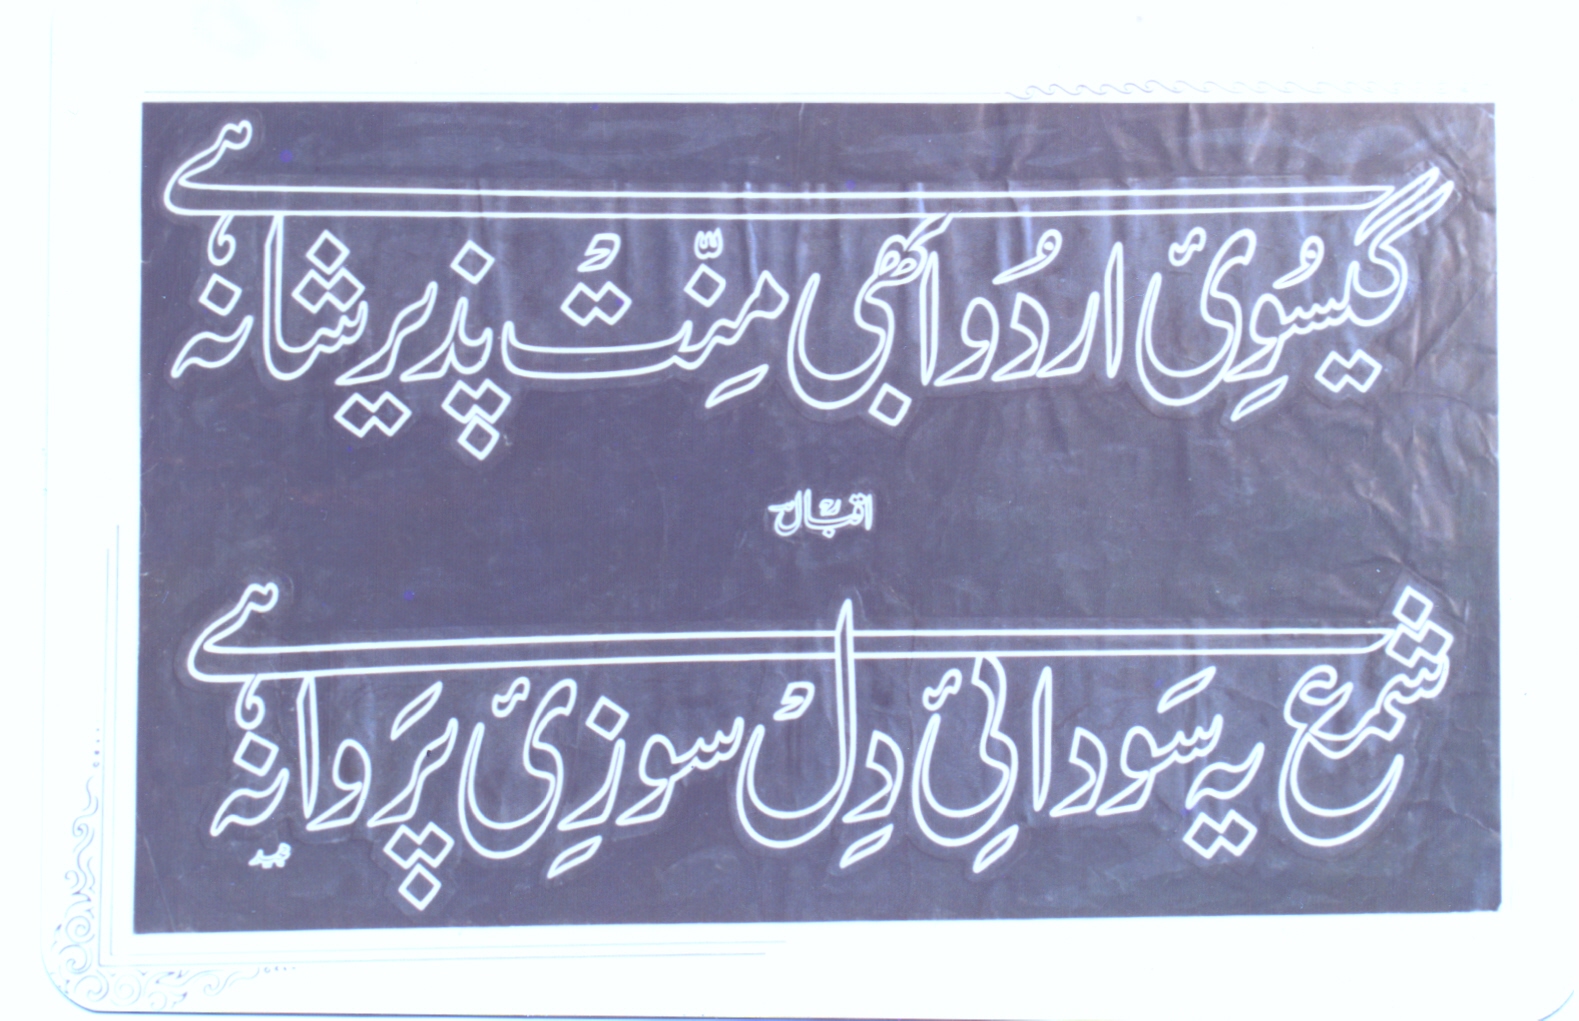 گیسُوِیٔ اردُو ابھی مِنّتْ پذیر شانہ ہے
اقبالؒ
شمع یہ سَودائیِ دِلْ سوزِیٔ پَروانہ ہے